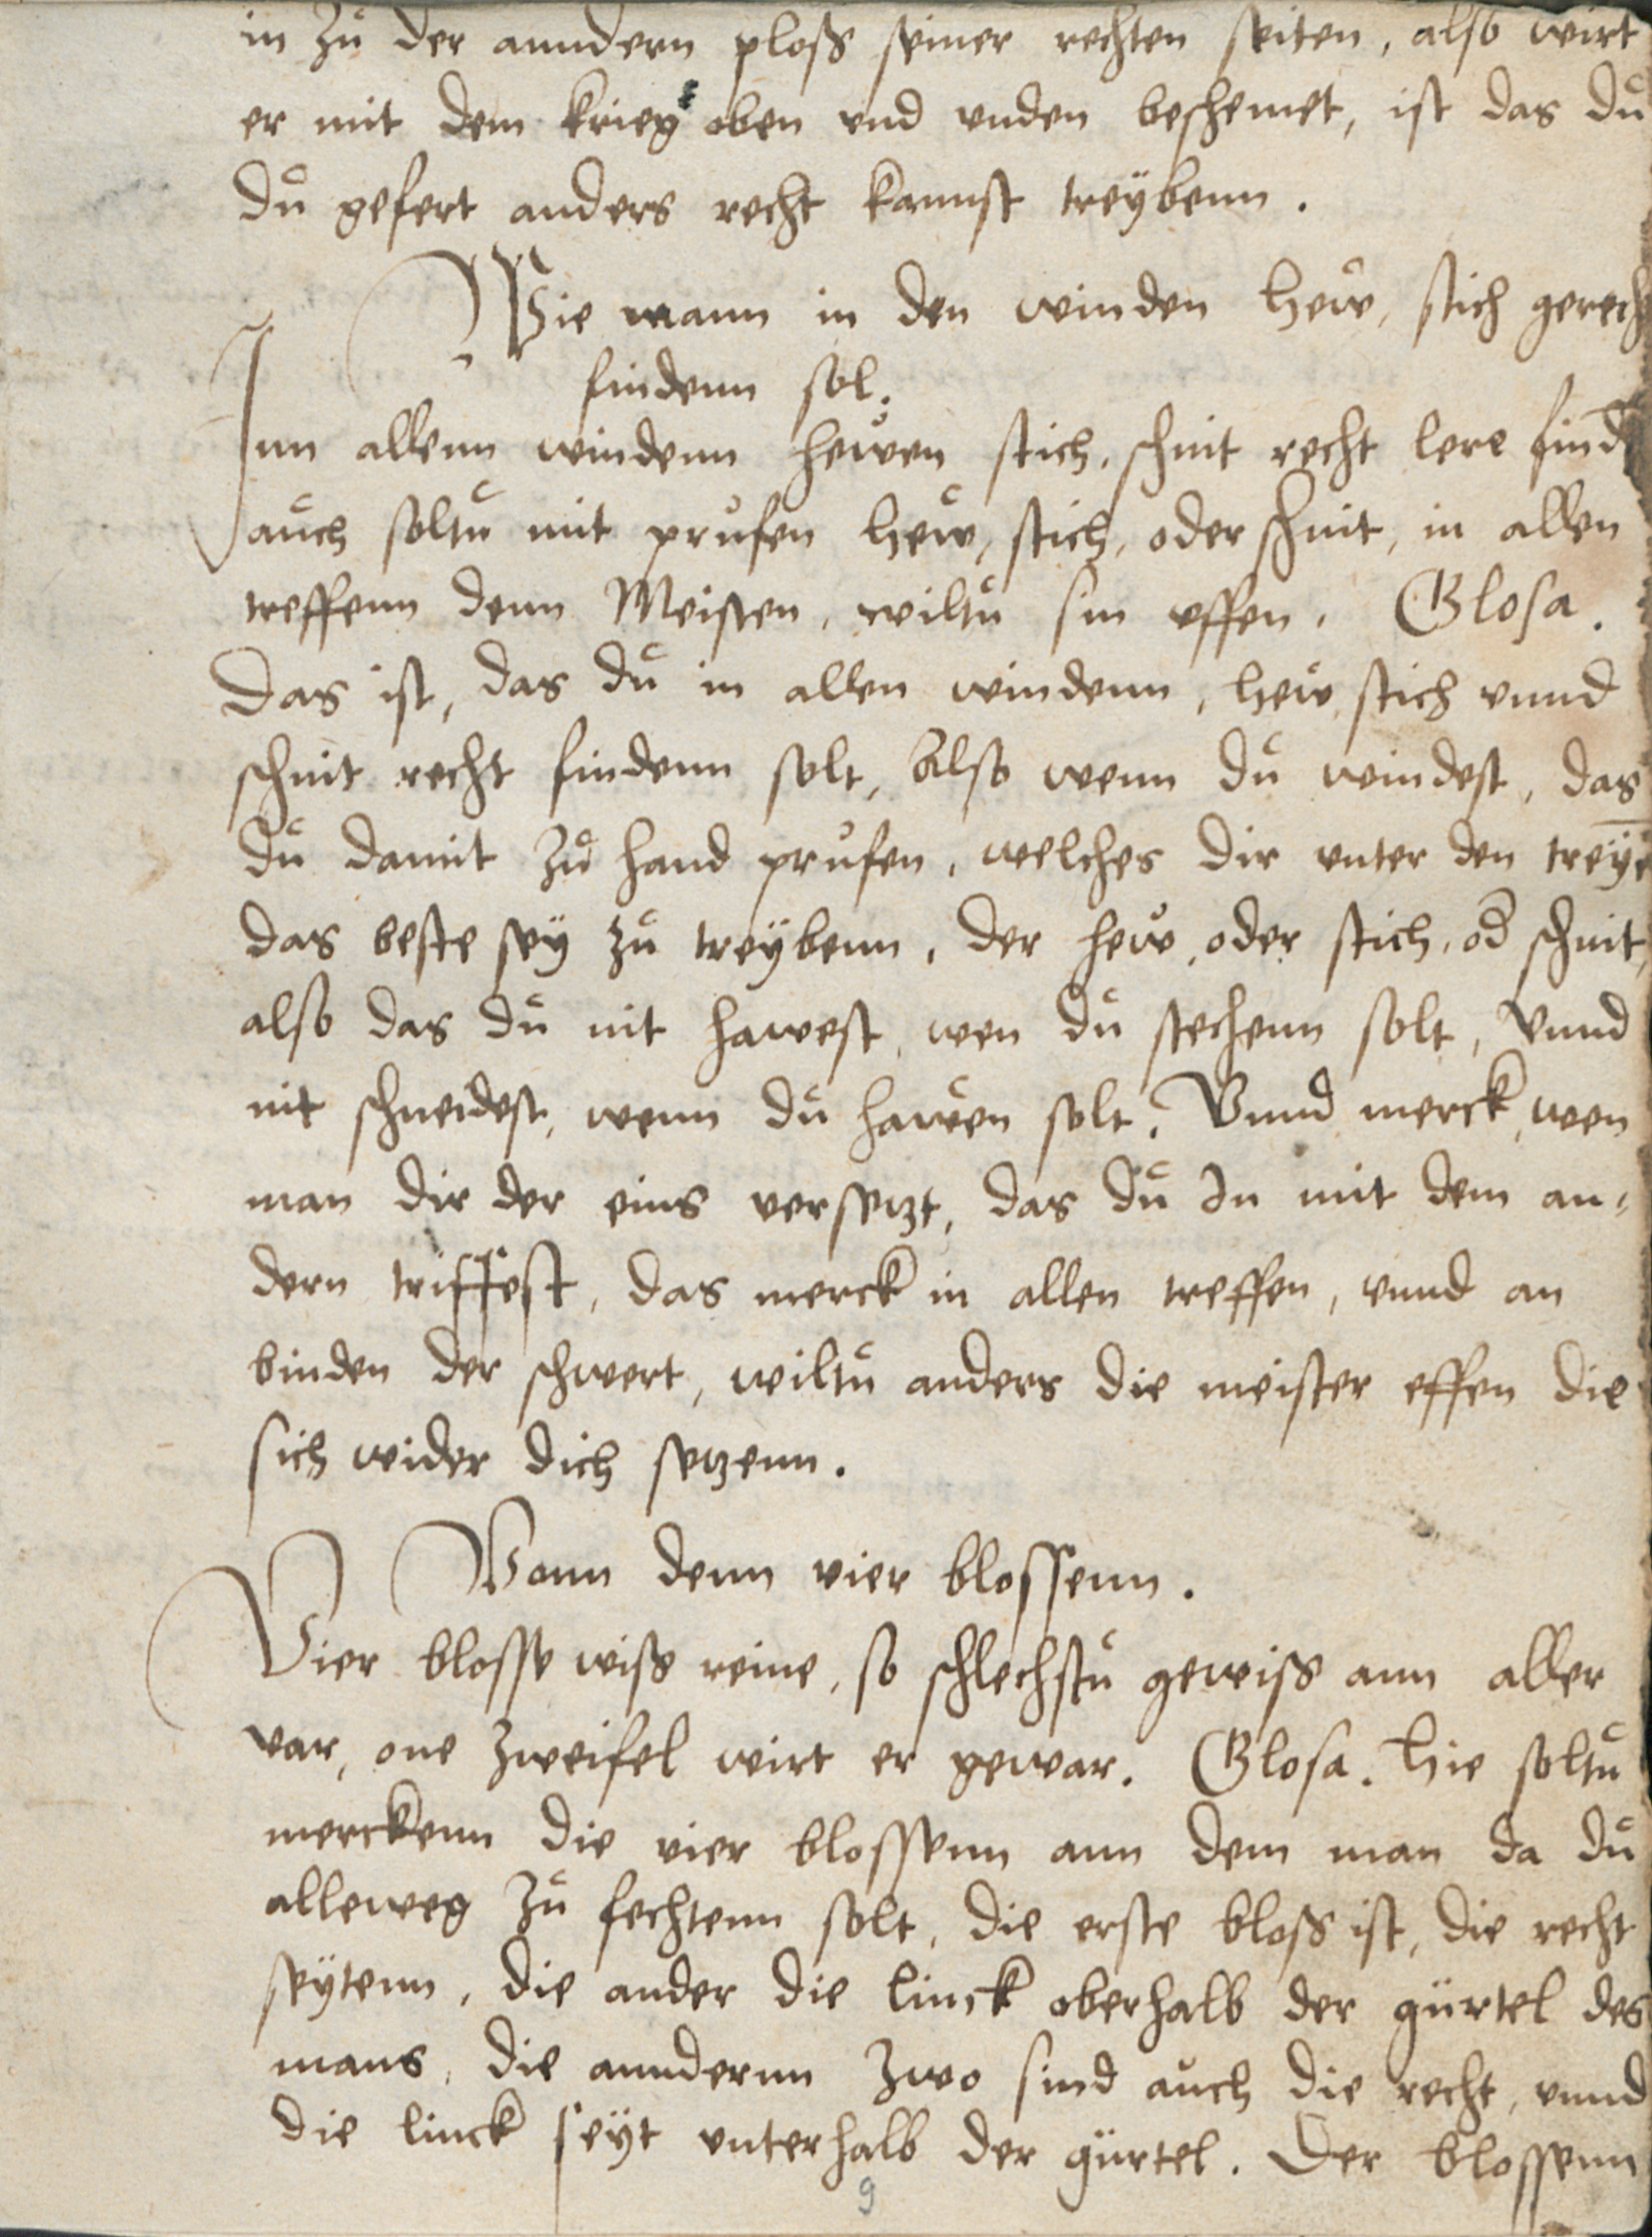 in zů der anndern ploß seiner rechten seiten, also wirt
er mit dem krieg oben vnd vnden beschemet, ist das dů
dů gefert anders recht kannst treÿbenn.
Wie mann in den winden hew, stich gerech
findenn sol.
Inn allenn windenn hewen stich, schnit recht lere find
aůch soltů mit prüfen hew, stich, oder schnit, in allen
treffenn denn Meisten, wiltů sin effen. Glosa.
Das ist, das dů in allen windenn, hew stich vnnd
schnit recht findenn solt, Also wenn dů windest, das
dů damit zů hand prüfen, welches dir vnter den treÿe
das beste seÿ zů treÿbenn, der hew, oder stich, od̄ schnit,
also das dů nit hawest, wen dů stechenn solt, Vnnd
nit schneidest, wenn dů hawen solt. Vnnd merck, wen
man dir der eins versetzt, das dů In mit dem an⸗
dern triffest, das merck in allen treffen, vnnd an
binden der schwert, wiltů anders die meister effen die
sich wider dich setzenn.
Vonn denn vier blossenn.
Vier blosse wiß reine, so schlechstů gewiss ann aller
var, one zweifel wirt er gewar. Glosa. Hie soltů
merckenn die vier blossenn ann dem man da dů
alleweg zů fechtenn solt, die erste bloß ist, die recht
seÿtenn, die ander die linck oberhalb der gürtel des
mans, die annderenn zwo sind aůch die recht, vnnd
die linck seÿt vnterhalb der gürtel. Der blossenn
9